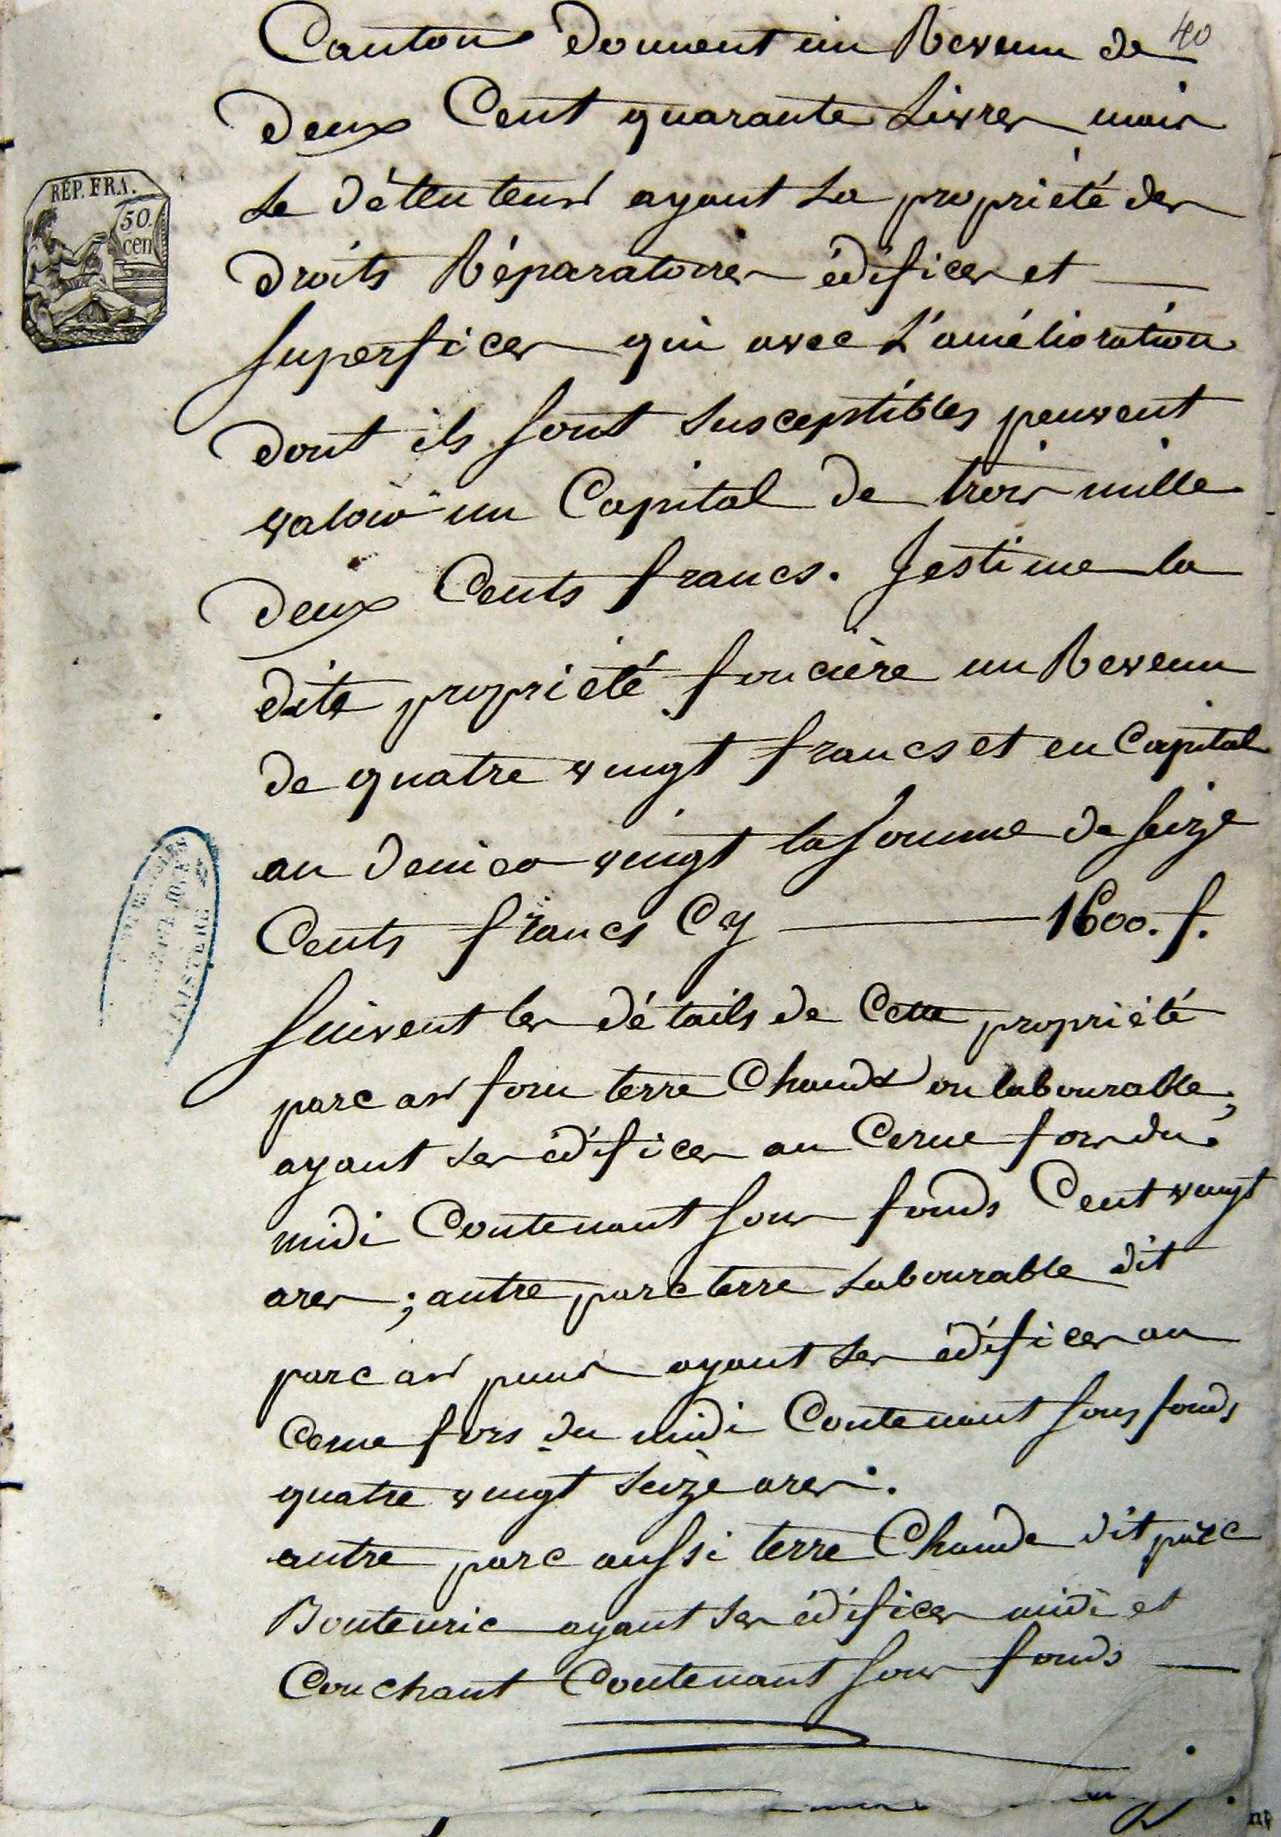 40
Canton donnent un Revenu de
deux Cent quarante Livres mais
Le détenteur ayant La propriété des
droits Réparatoires édifices et
superfices qui avec L'amélioration
dont ils sont susceptibles peuvent
valoir un Capital de trois mille
deux Cents francs. Jestime la
dite propriété foncière un Revenu
de quatre vingt francs et en Capital
au denier vingt la somme de seize
Cents francs Cy 1600. f.
suivent les détails de Cette propriété
parc ar forn terre Chaude ou labourable,
ayant ses édifices au Cerne fors du
midi Contenant sous fonds Cent vingt
ares ; autre parc terre Labourable dit
parc ar puns ayant ses édifices au
Cerne fors du midi Contenant sous fonds
quatre vingt seize ares.
autre parc aussi terre Chaude dit parc
Bouteuric ayant ses édifices midi et
Couchant Contenant sous fonds
RÉP. FRA.
50.
cen